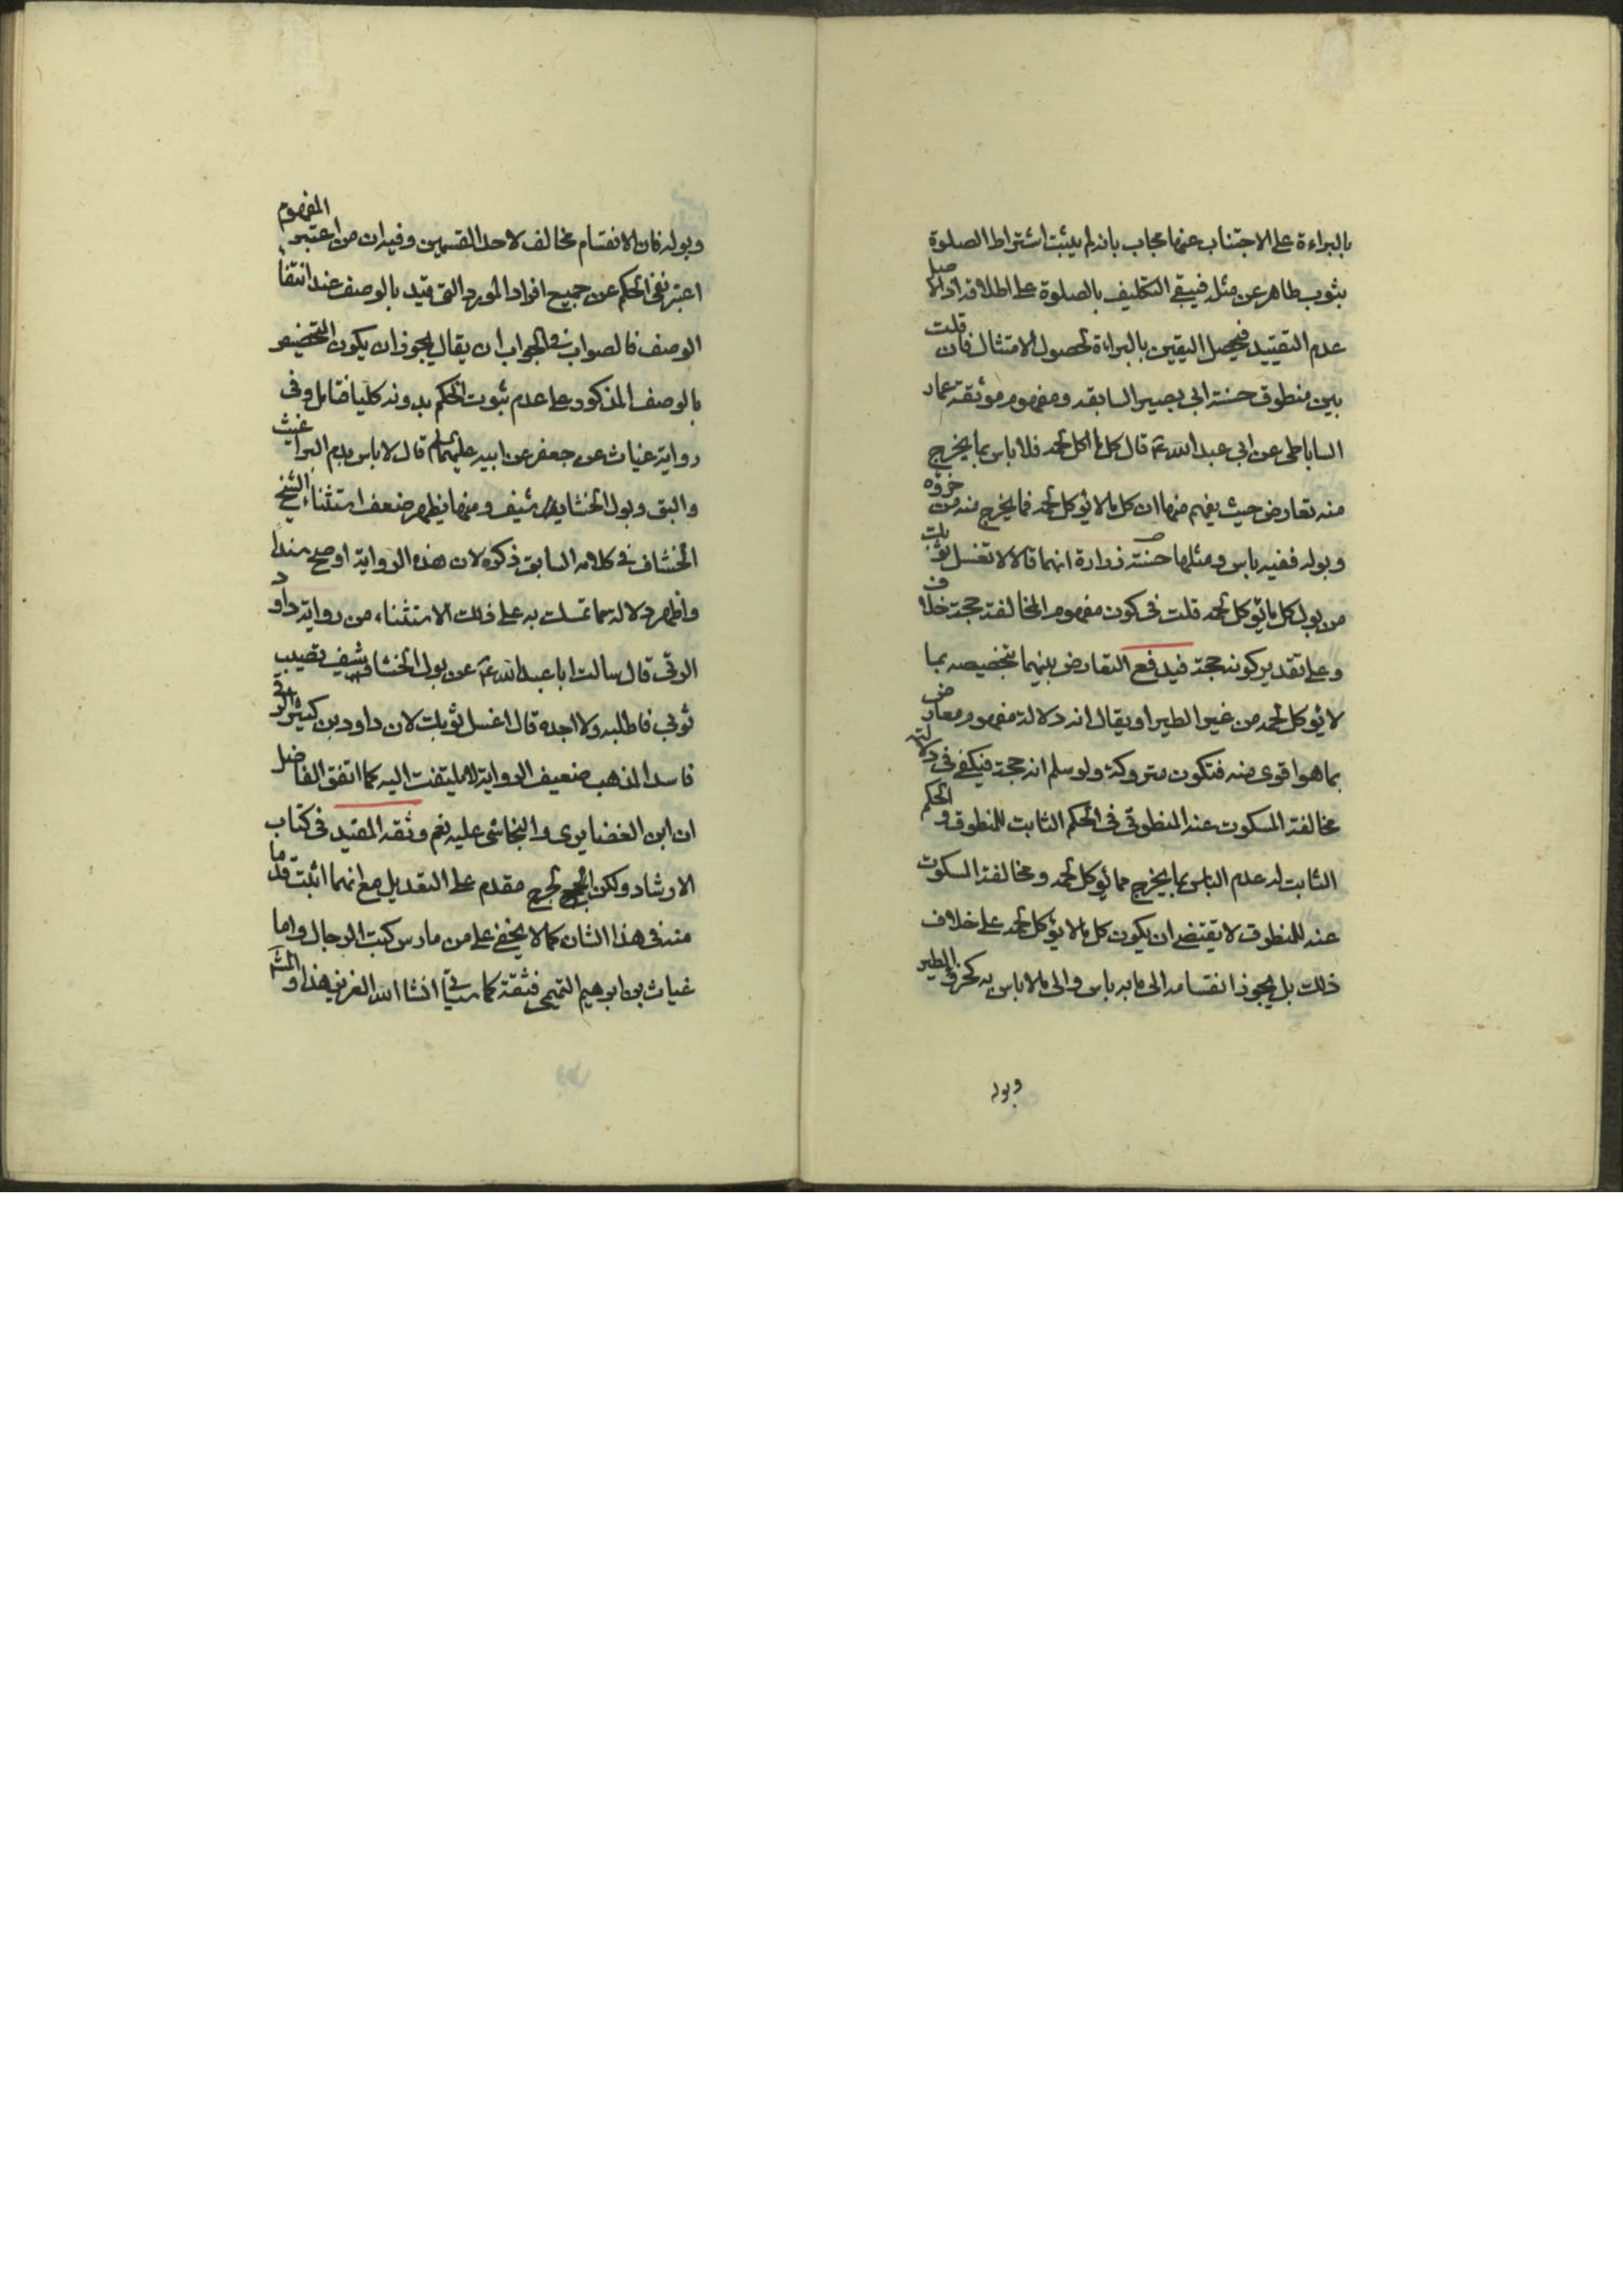 بالبراءة على الاجتناب عنها مجاب بانه لم يثبت اشتراط الصلوة
بثوب طاهر عن مثله فيبقى التكليف بالصلوة على اطلاقه اذ الاصل
عدم التقييد فيحصل اليقين بالبراءة لحصول الامتثال فان قلت
بين منطوق حسنة ابي بصير السابقه ومفهوم موثقة عمار
الساباطى عن ابي عبد الله ع قال كل ما اكل لحمه فلا باس بما يخرج
منه تعارض حيث يفهم منها ان كل ما لا يؤكل لحمه فما يخرج منه من خرؤه
وبوله ففيه باس ومثلها حسنة زرارة انهما قالا لا تغسل ثوبك
من بول كل ما يؤكل لحمه قلت فى كون مفهوم المخالفة حجة خلاف
وعلى تقدير كونه حجة فيدفع التعارض بينهما بتخصيصه بما
لا يؤكل لحمه من غير الطير او يقال انه دلالة مفهوم معارض
بما هو اقوى منه فتكون متروكة ولو سلم انه حجة فيكفى فى دلالته
مخالفة المسكوت عنه المنطوق فى الحكم الثابت للمنطوق والحكم
الثابت له عدم الباس بما يخرج مما يؤكل لحمه ومخالفة المسكوت
عنه للمنطوق لا يقتضى ان يكون كل ما لا يؤكل لحمه على خلاف
ذلك بل يجوز انقسامه الى ما به باس والى ما لا باس به كخرؤ الطير
وبوله
وبوله فان الانقسام مخالف لاحد القسمين وفيه ان من اعتبر المفهوم
اعتبر نفى الحكم عن جميع افراد المورد التى قيد بالوصف عند انتفاء
الوصف فالصواب فى الجواب ان يقال يجوز ان يكون التخصيص
بالوصف المذكور على عدم ثبوت الحكم بدونه كليا فتامل وفى
رواية غياث عن جعفر عن ابيه عليهما السلم قال لا باس بدم البراغيث
والبق وبول الخشاشيف ومنها يظهر ضعف استثناء الشيخ
الخشاف فى كلامه السابق ذكره لان هذه الرواية اوضح سندا
واظهر دلالة مما تمسك به على ذلك الاستثناء من رواية داود
الرقى قال سالت ابا عبد الله ع عن بول الخشاشيف يصيب
ثوبي فاطلبه ولا اجده قال اغسل ثوبك لان داود بن كثير الرقى
فاسد المذهب ضعيف الرواية لا يلتفت اليه كما اتفق الفاضل
ان ابن الغضايرى والنجاشى عليه نعم وثقه المفيد فى كتاب
الارشاد ولكن الجرح مقدم على التعديل مع انهما اثبت قدما
منه فى هذا الشان كما لا يخفى على من مارس كتب الرجال واما
غياث بن ابرهيم التميمى فثقة كما سياتى انشا الله العزيز هذا والمشهور